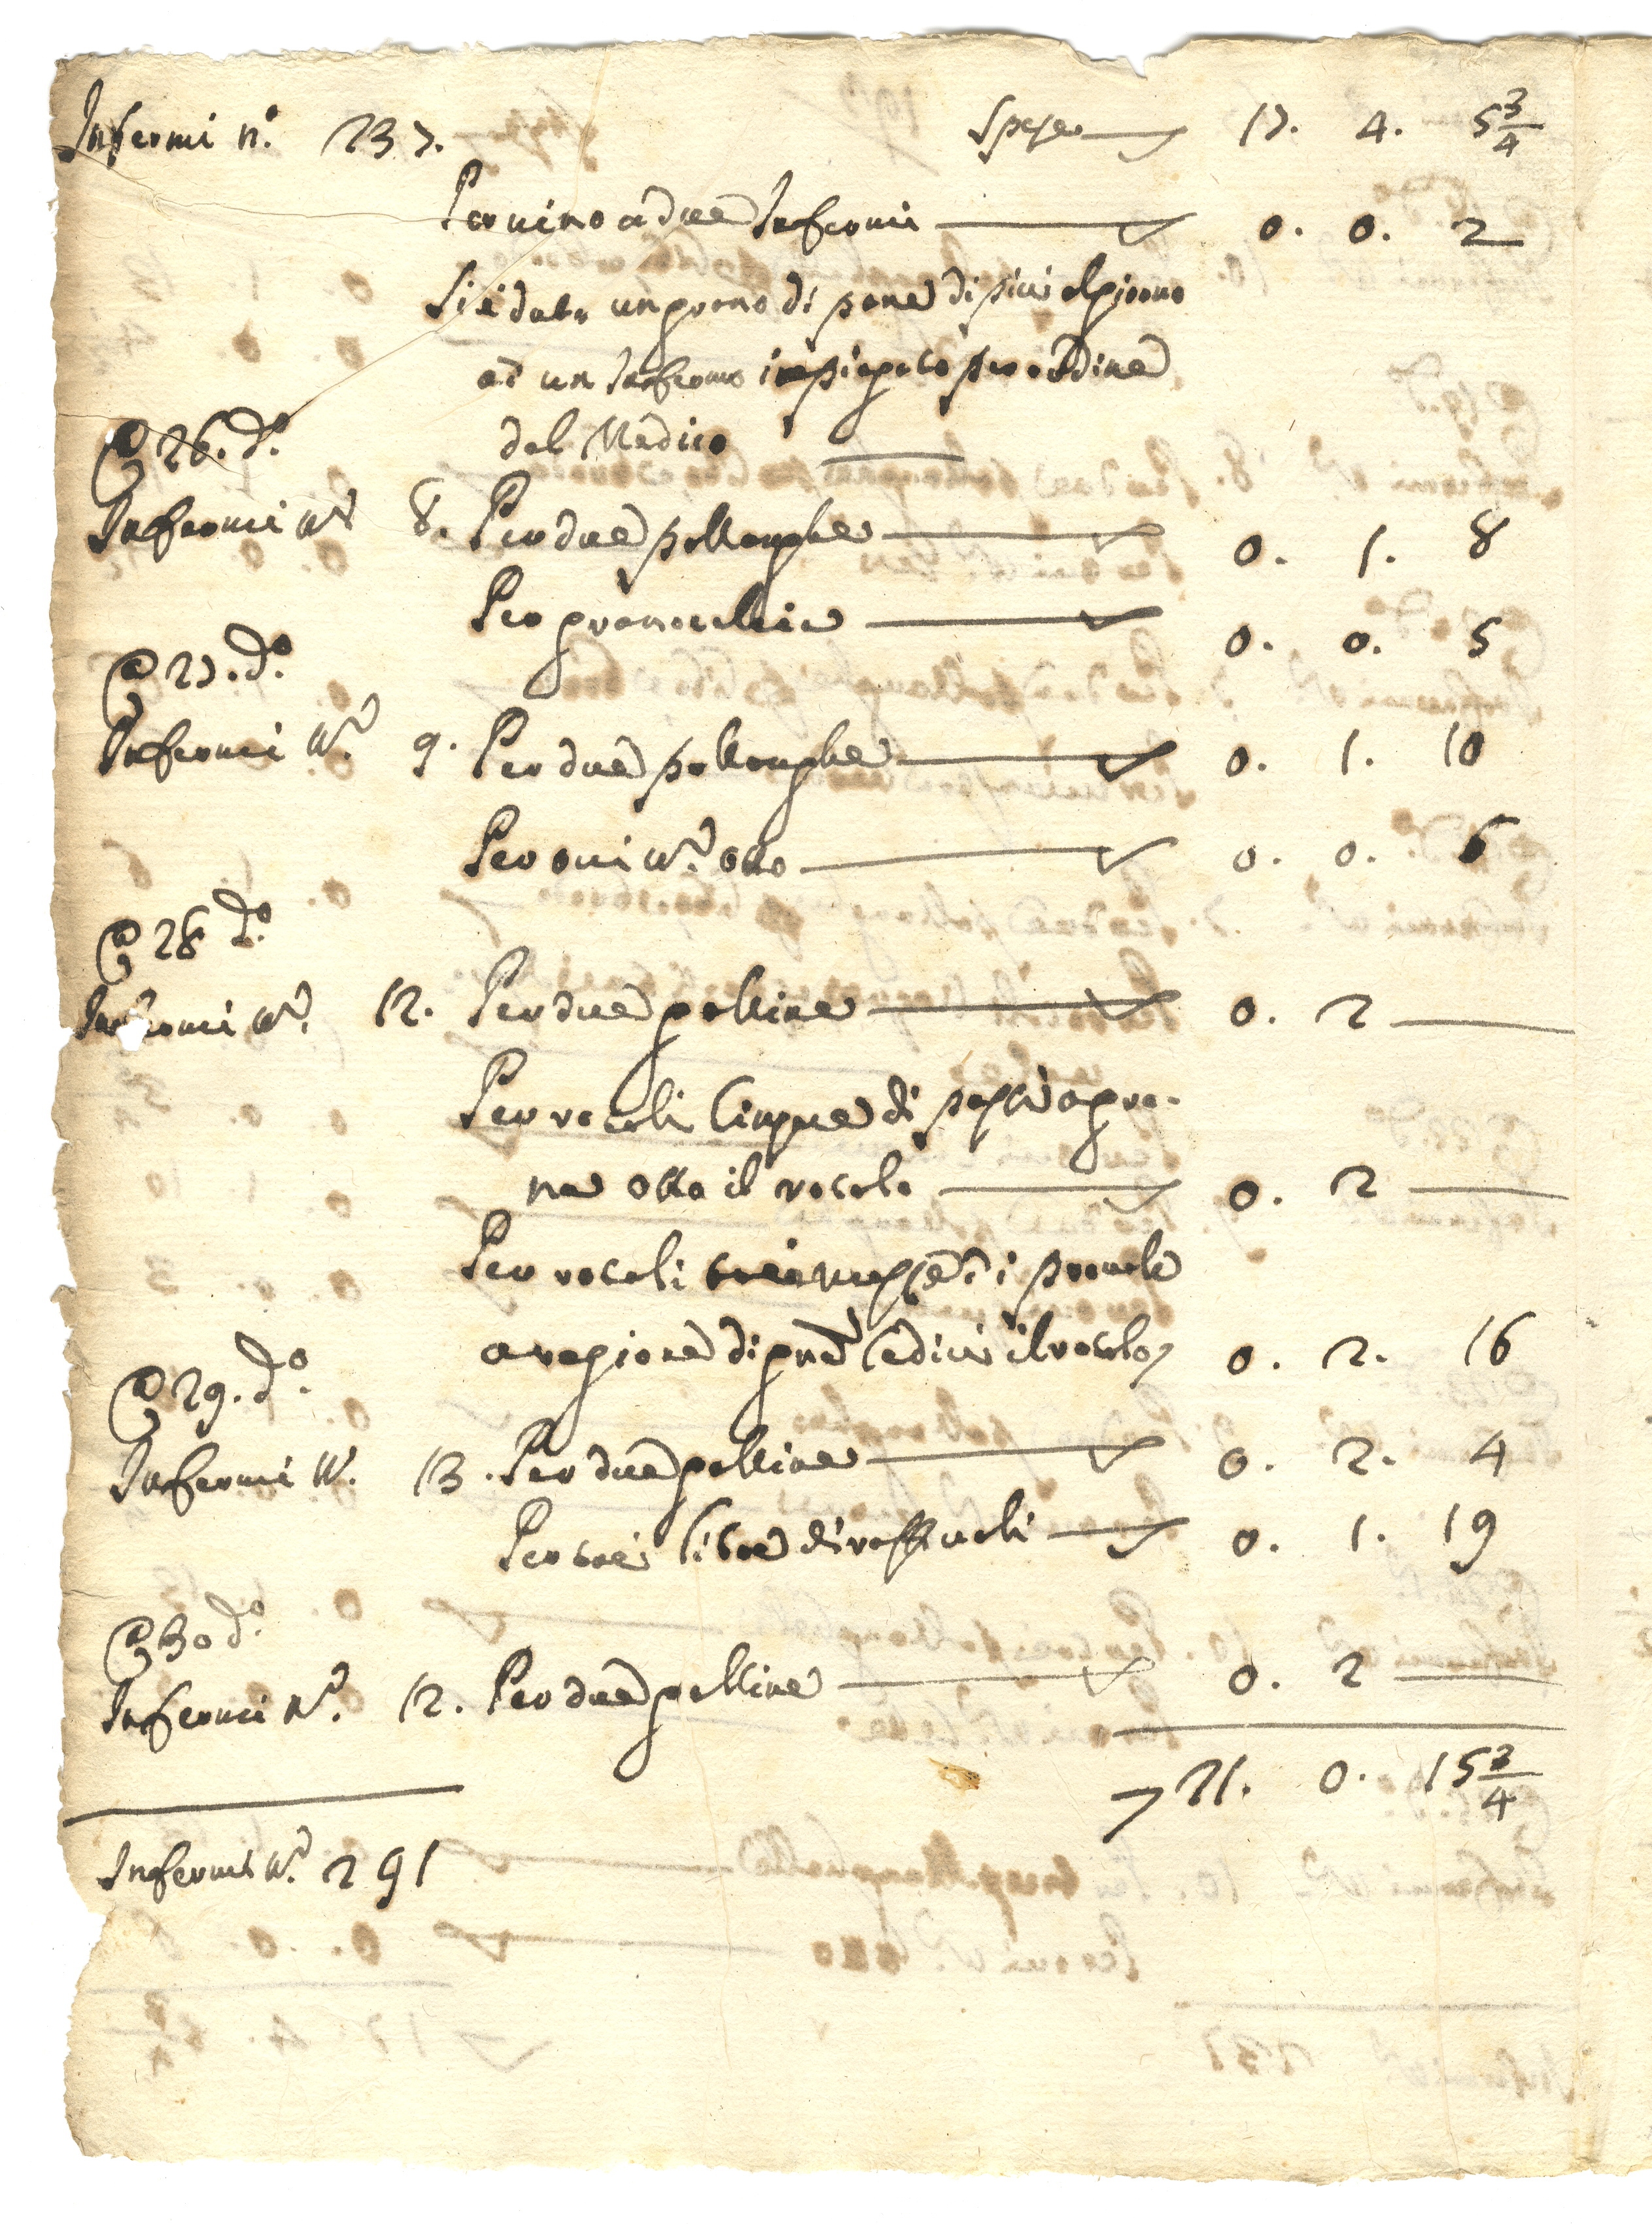 Infermi n.° 237. Spese 17. 4. 5 3/4
Per vino a due Infermi 0. 0. 2
Si è dato un grano di pane di più al giorno
ad un Infermo impiegato per ordine
del Medico
A 26. d.°
Infermi n.° 8. Per due pollanghe 0. 1. 8
Per 0. 0. 5
A 27. d.°
Infermi n.° 9. Per due pollanghe 0. 1. 10
Per ovi n.° otto 0. 0. 6
A 28 d.°
Infermi n.° 12. Per due galline 0. 2
Per rotoli Cinque di pesci a gra-
na otto il rotolo 0. 2
Per rotoli tre e mezzo di
a ragione di gna Sedici il rotolo 0. 2. 16
A 29. d.°
Infermi n. 13. Per due galline 0. 2. 4
Per tre libre di raffiuoli 0. 1. 19
A 30 d.°
Infermi n.° 12. Per due galline 0. 2
21. 0. 15 3/4
Infermi n.° 291